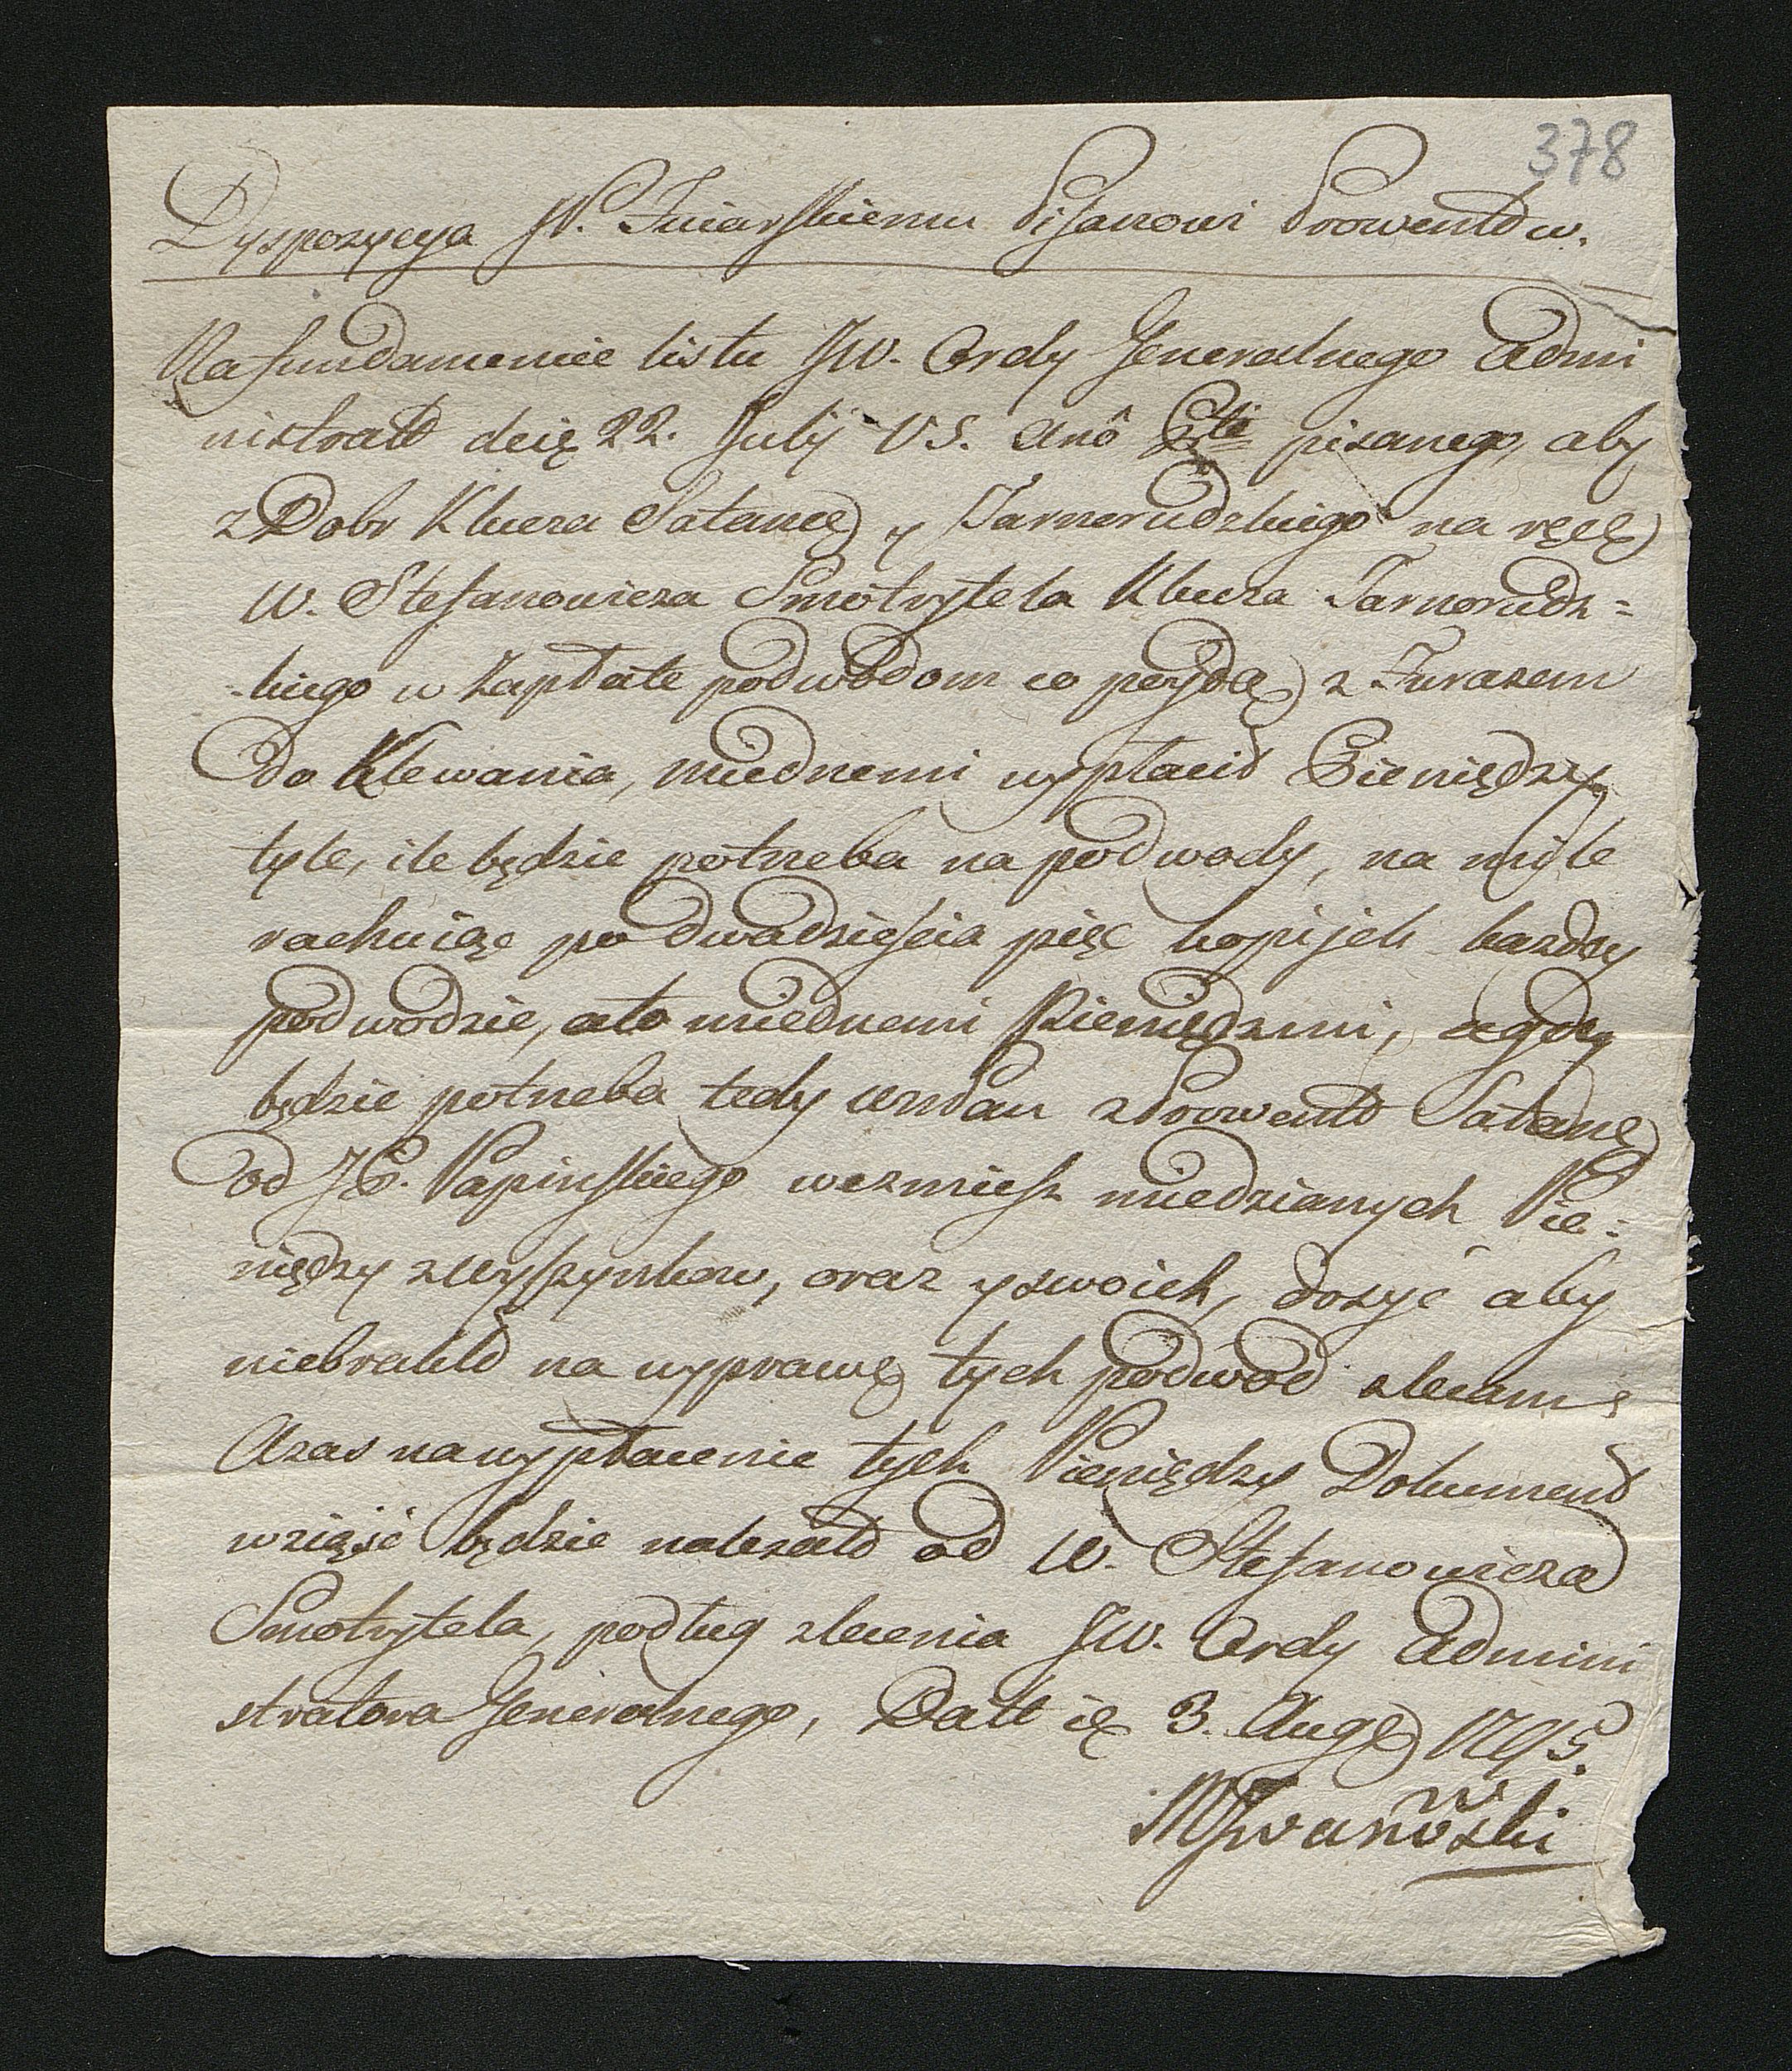 378
Dyspozycya W. Zniarskiemu Pisarzowi Prowentów.
Na fundamencie listu JW. Ordy Generalnego Admi
nistratt dcię 22. Julij V.S. anô pisanego, aby
z Dobr Klucza Satanȩ y Tarnorudzkiego na ręcȩ
W. Stefanowicza Smotrytela Klucza Tarnorudz=
-kiego w zapłate podwodom co poydą z Furazem
do Klewania, miednemi wypłacić Pieniędzy
tyle, ile będzie potrzeba na podwody, na mile
rachuiąc po dwadzieścia pięc kopijek kazdey
podwodzie, a to miednemi Pieniędzmi, a gdy
będzie potrzeba tedy z Prowentt Satanȩ
od JP. Papinskiego wezmiesz miedzianych Pie=
niędzy z Wyszynkow, oraz y swoich, dosyć aby
niebrakło na wyprawę tych podwod zlecam
A zas na wypłacenie tych Pieniędzy Dokument
wziąść będzie nalezało od W. Stefanowicza
Smotrytela, podług zlecenia JW. Ordy Admini
stratora Generalnego, Datt ię 3. Augȩ 1795.
MJwanowski